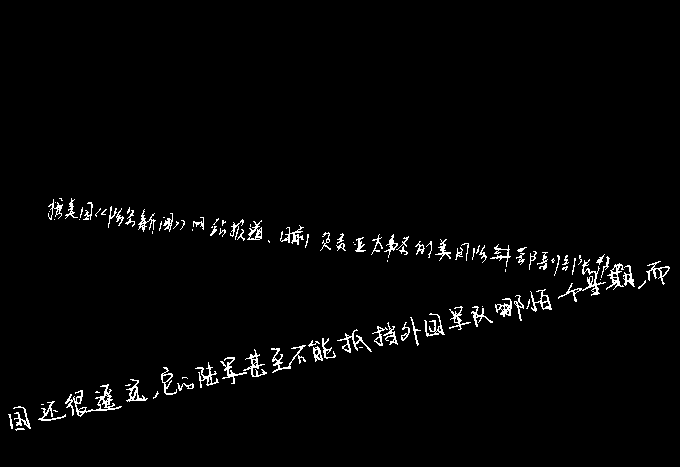 据美国《防务新闻》网站报道、日前,负责亚太事务的美国防部副部长帮
国还很遥远,它的陆军甚至不能抵挡外国军队哪怕一个星期,而